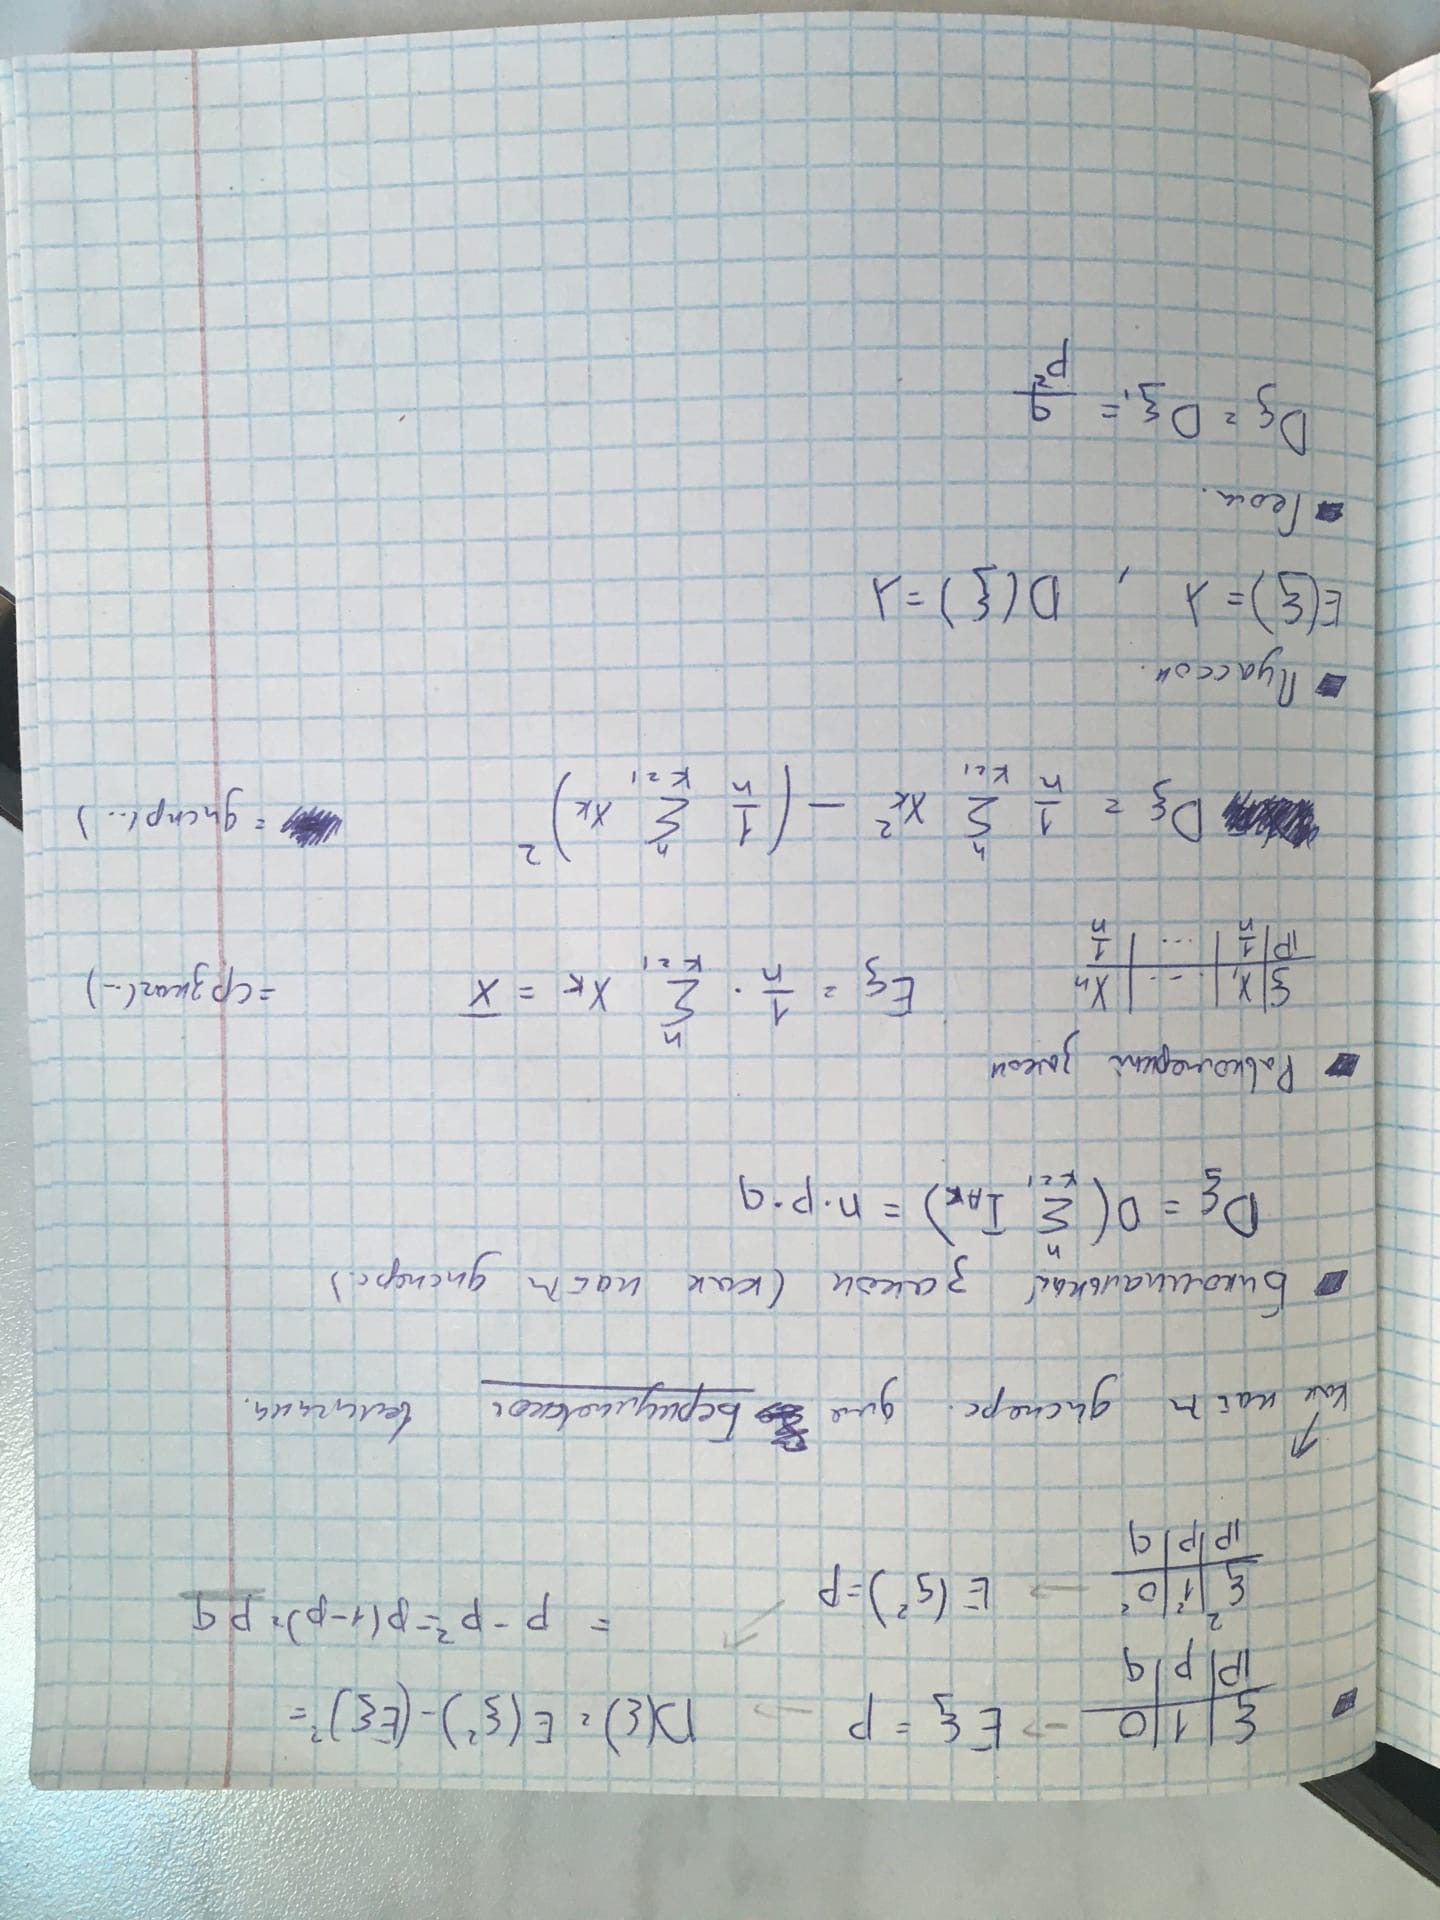 ξ | 1 | 0 → Eξ = p → D(ξ) = E(ξ²) - (Eξ)² =
P | p | q
= p - p² = p(1-p) = pq
ξ² | 1² | 0² → E(ξ²) = p
P | p | q
Как найти дисперс. для Бернулиевской величины.
Биномиальный закон (как найти дисперс.)
Dξ = D(∑ₖ₌₁ⁿ I_Aₖ) = n·p·q
Равномерный закон
ξ | X₁ | ... | Xₙ Eξ = 1/n · ∑ₖ₌₁ⁿ Xₖ = X̅ =срзнач(...)
P | 1/n | ... | 1/n
Dξ = 1/n ∑ₖ₌₁ⁿ Xₖ² - (1/n ∑ₖ₌₁ⁿ Xₖ)² = диспр(..)
Пуассон.
E(ξ) = λ , D(ξ) = λ
Геом.
Dξ = Dξ₁ = q/p²